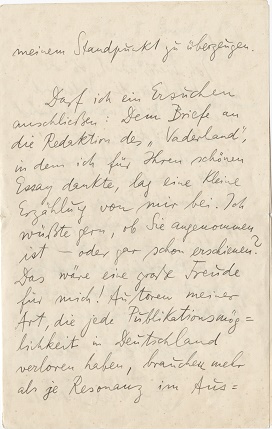 meinem Standpunkt zu überzeugen.
Darf ich ein Ersuchen
anschließen: Dem Briefe an
die Redaktion des „Vaderland",
in dem ich für Ihren schönen
Essay dankte, lag eine kleine
Erzählung von mir bei. Ich
wüßte gern, ob Sie angenommen
ist – oder gar schon erschienen?
Das wäre eine große Freude
für mich! Autoren meiner
Art, die jede Publikationsmög=
lichkeit in Deutschland
verloren haben, brauchen mehr
als je Resonanz im Aus=